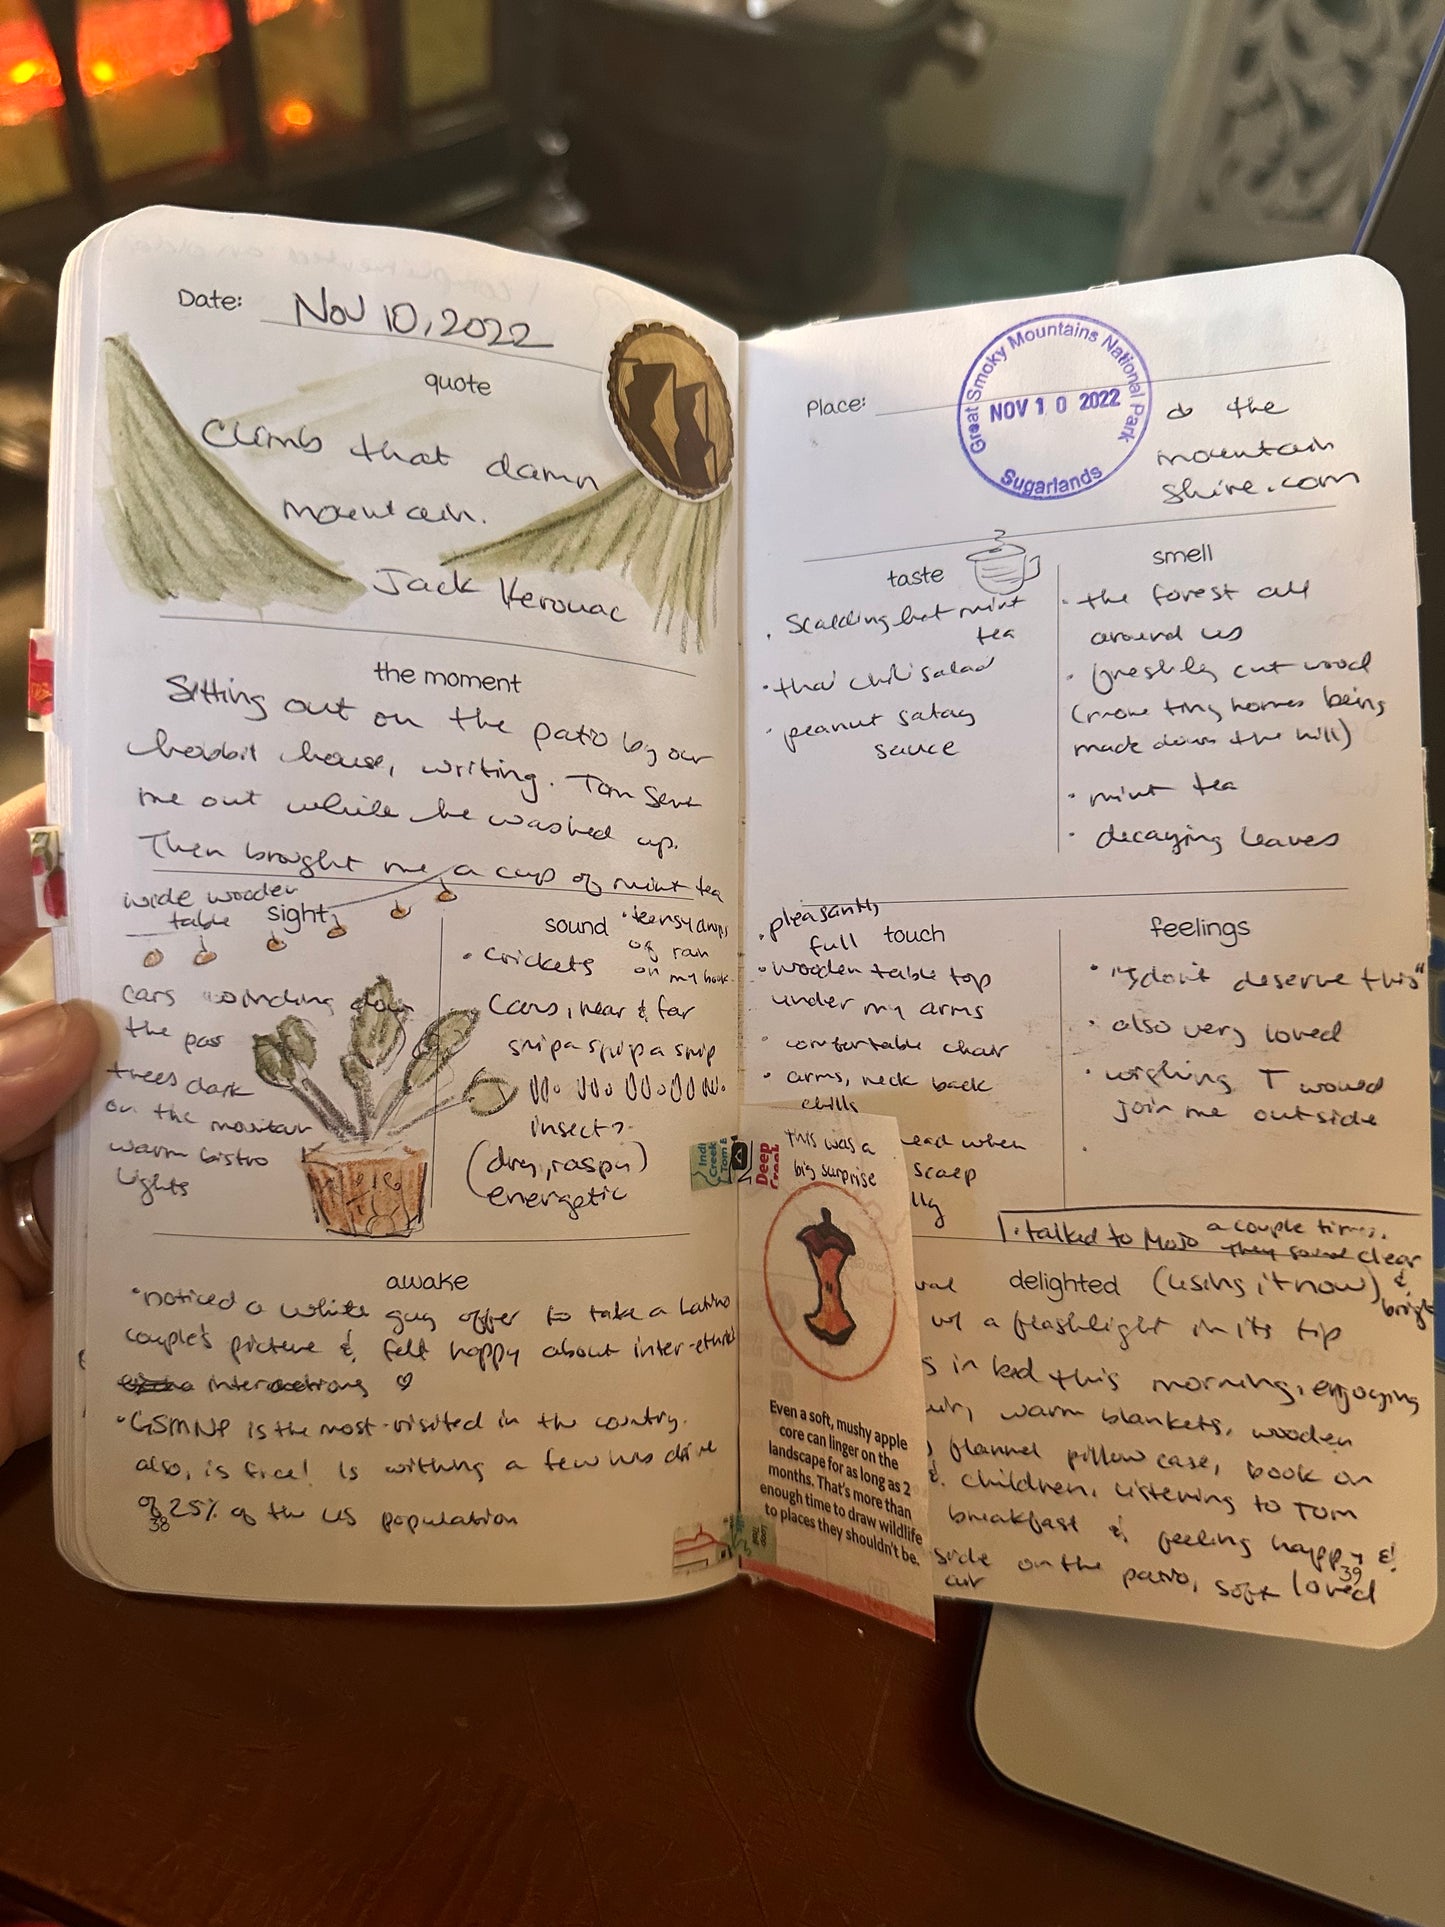 Date: Nov 10, 2022
quote
Climb that damn
mountain.
Jack Kerouac
the moment
Sitting out on the patio by our
hobbit house, writing. Tom sent
me out while he washed up.
Then brought me a cup of mint tea
wide wooden
table
sight
cars winding down
the pass
trees dark
on the mountain
warm bistro
lights
sound
• teensy drops
of rain
on my book.
• crickets
cars, near & far
snip a snip a snip
insect?
(dry, raspy)
energetic
awake
• noticed a white guy offer to take a Latino
couple's picture & felt happy about inter-ethnic
interactions ♡
• GSMNP is the most-visited in the country.
also, is free! Is withing a few hrs drive
of 25% of the US population
38
Place:
Great Smoky Mountains National Park
NOV 10 2022
Sugarlands
the
mountain
shire.com
taste
• Scalding hot mint
tea
• thai chili salad
• peanut satay
sauce
smell
• the forest all
around us
• freshly cut wood
(more tiny homes being
made down the hill)
• mint tea
• decaying leaves
• pleasantly
full
touch
• wooden table top
under my arms
• comfortable chair
• arms, neck back
chills
ead when
scalp
lly
feelings
• "I don't deserve this"
• also very loved
• wishing T would
join me outside
•
Indi
Creek
Tom B
Deep
Creek
This was a
big surprise
Even a soft, mushy apple
core can linger on the
landscape for as long as 2
months. That's more than
enough time to draw wildlife
to places they shouldn't be.
• talked to Mojo a couple times.
They sound clear
& bright
delighted
(using it now)
w/ a flashlight in its tip
s in bed this morning, enjoying
warm blankets, wooden
flannel pillow case, book on
& children, listening to Tom
breakfast & feeling happy &
side on the patio, soft loved
air
39